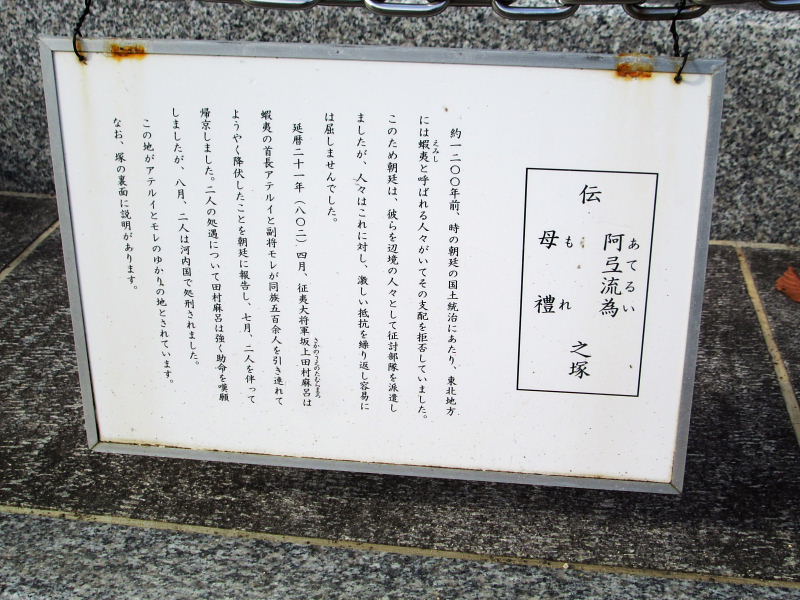 伝 阿弖流為 母禮 之塚
あてるい
もれ
約一二〇〇年前、時の朝廷の国土統治にあたり、東北地方
には蝦夷と呼ばれる人々がいてその支配を拒否していました。
えみし
このため朝廷は、彼らを辺境の人々として征討部隊を派遣し
ましたが、人々はこれに対し、激しい抵抗を繰り返し容易に
は屈しませんでした。
延暦二十一年（八〇二）四月、征夷大将軍坂上田村麻呂は
さかのうえのたむらまろ
蝦夷の首長アテルイと副将モレが同族五百余人を引き連れて
ようやく降伏したことを朝廷に報告し、七月、二人を伴って
帰京しました。二人の処遇について田村麻呂は強く助命を嘆願
しましたが、八月、二人は河内国で処刑されました。
この地がアテルイとモレのゆかりの地とされています。
なお、塚の裏面に説明があります。